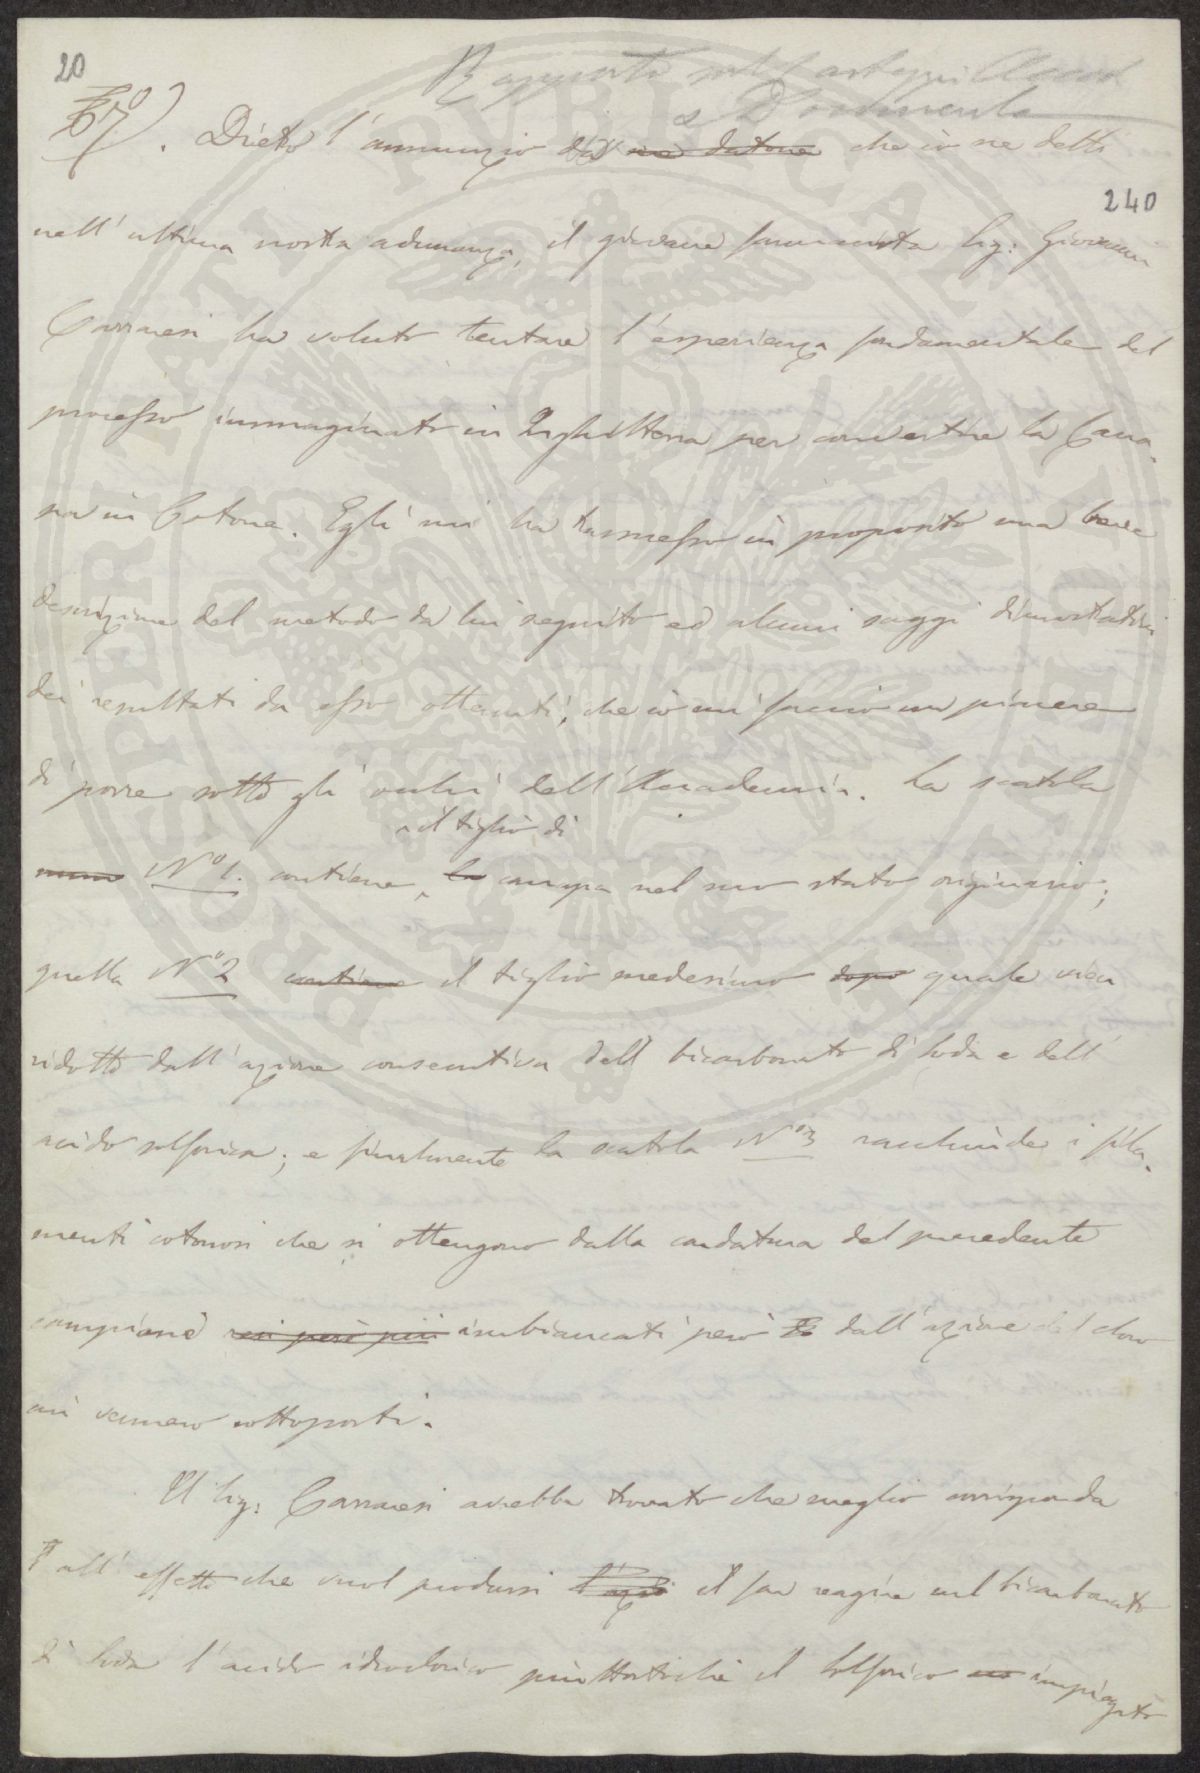 20
Rapporto sul Carteggi Accad
e Documenti
7°). Dietro l'annunzio da ne datone che io ne detti
240
nell'ultima nostra adunanza, il giovane farmacista Sig: Giovanni
Carraresi ha voluto tentare l'esperienza fondamentale del
processo immaginato in Inghilterra per convertire la Cana-
pa in Cotone. Egli mi ha trasmesso in proposito una breve
descrizione del metodo da lui seguito ed alcuni saggi dimostrativi
dei resultati da esso ottenuti, che io mi faccio un piacere
di porre sotto gli occhi dell'Accademia. La scatola
il tiglio di
N° 1. contiene la canapa nel suo stato originario;
quella N° 2 contiene il tiglio medesimo dopo quale vien
ridotto dall'azione consecutiva dell bicarbonato di Soda e dell'
acido solforico; e finalmente la scatola N° 3 racchiude i fila-
menti cotonosi che si ottengono dalla cardatura del precedente
campione resi però più imbiancati però dall'azione del cloro
cui vennero sottoposti.
Il Sig: Carraresi avrebbe trovato che meglio corrisponda
all'effetto che vuol prodursi l'azio il far reagire sul bicarbonato
di Soda l'acido idroclorico piuttostochè il Solforico impiegato